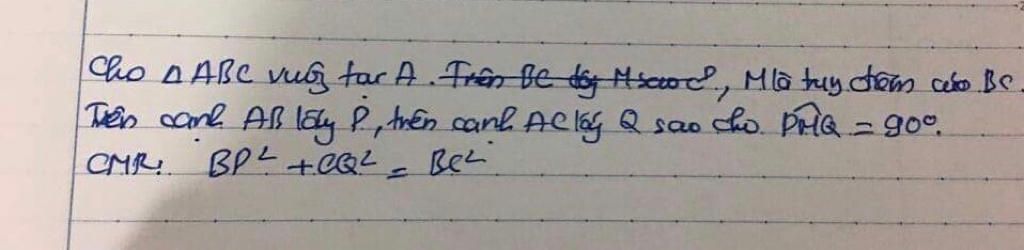 Cho Δ ABC vuông tại A. Trên BC lấy M sao c⁠ho, M là tuỳ điểm của BC.
Trên cạnh AB lấy P, trên cạnh AC lấy Q sao cho PMQ = 90°.
CMR: BP² + CQ² = BC²